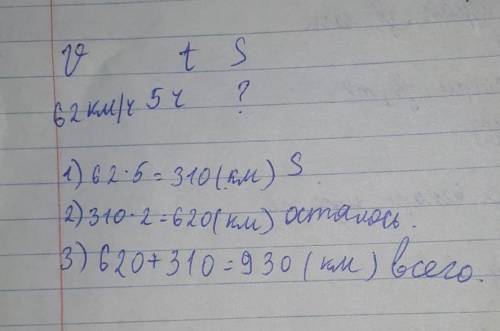 V t S
62 км/ч 5 ч ?
1) 62·5=310(км) S
2) 310·2=620(км) осталось.
3) 620+310=930 (км) всего.